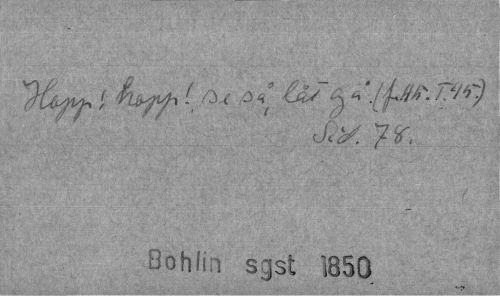 Hopp! hopp! se så, låt gå. (f. 45. T. 45.)
Sid. 78.
Bohlin sgst 1850